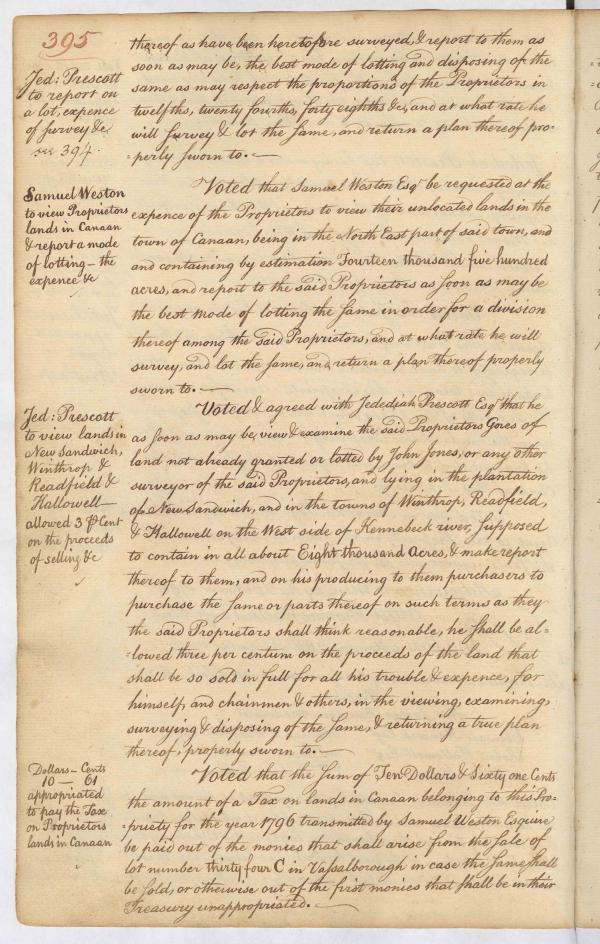 395
Jed: Prescott
to report on
a lot, expence
of survey &c
see 394.
thereof as have been heretofore surveyed, & report to them as
soon as may be, the best mode of lotting and disposing of the
same as may respect the proportions of the Proprietors in
twelfths, twenty fourths, forty eighths &c, and at what rate he
will survey & lot the same, and return a plan thereof pro-
-perly sworn to.—
Samuel Weston
to view Proprietors
lands in Canaan
& report a mode
of lotting – the
expence &c
Voted that Samuel Weston Esqr be requested at the
expence of the Proprietors to view their unlocated lands in the
town of Canaan, being in the North East part of said town, and
and containing by estimation Fourteen thousand five hundred
acres, and report to the said Proprietors as soon as may be
the best mode of lotting the same in order for a division
thereof among the said Proprietors, and at what rate he will
survey, and lot the same, and return a plan thereof properly
sworn to.—
Jed: Prescott
to view lands in
New Sandwich,
Winthrop &
Readfield &
Hallowell—
allowed 3 ⅌ Cent
on the proceeds
of selling &c
Voted & agreed with Jedediah Prescott Esqr that he
as soon as may be, view & examine the said Proprietors Gores of
land not already granted or lotted by John Jones, or any other
surveyor of the said Proprietors, and lying in the plantation
of New Sandwich, and in the towns of Winthrop, Readfield,
& Hallowell on the West side of Kennebeck river, supposed
to contain in all about Eight thousand Acres, & make report
thereof to them, and on his producing to them purchasers to
purchase the same or parts thereof on such terms as they
the said Proprietors shall think reasonable, he shall be al-
-lowed three per centum on the proceeds of the land that
shall be so sold in full for all his trouble & expence, for
himself, and chainmen & others, in the viewing, examining,
surveying & disposing of the same, & returning a true plan
thereof, properly sworn to.—
Dollars – Cents
10 — 61
appropriated
to pay the Tax
on Proprietors
lands in Canaan
Voted that the sum of Ten Dollars & Sixty one Cents
the amount of a Tax on lands in Canaan belonging to this Pro-
-priety for the year 1796 transmitted by Samuel Weston Esquire
be paid out of the monies that shall arise from the sale of
lot number thirty four C in Vassalborough in case the same shall
be sold, or otherwise out of the first monies that shall be in their
Treasury unappropriated.—